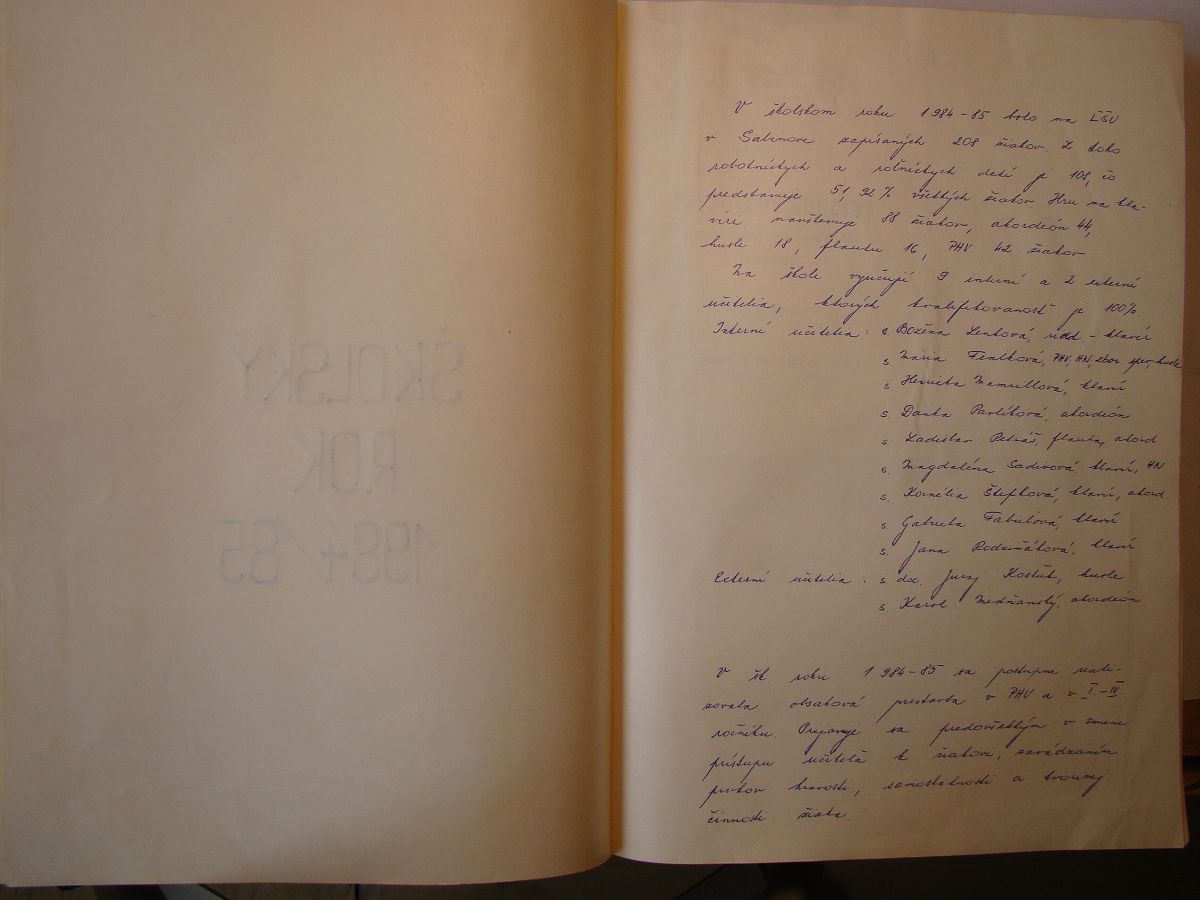 ŠKOLSKÝ
ROK
1984/85
V školskom roku 1984-85 bolo na ĽŠU
v Sabinove zapísaných 208 žiakov. Z toho
robotníckych a roľníckych detí je 108, čo
predstavuje 51,92 % všetkých žiakov. Hru na kla-
víri navštevuje 88 žiakov, akordeón 44,
husle 18, flautu 16, PHV 42 žiakov.
Na škole vyučujú 9 interní a 2 externí
učitelia, ktorých kvalifikovanosť je 100%
Interní učitelia: s. Božena Lenková, riad - klavír
s. Mária Feníková, PHV, HN, zbor. spev, husle
s. Henrieta klavír
s. Danka Pavlíková, akordeón
s. Ladislav Petráš, flauta, akord.
s. Magdaléna klavír, HN
s. Kornélia Štefková, klavír, akord.
s. Gabriela klavír
s. Jana klavír
Externí učitelia: s. Juraj husle
s. Karol Medňanský, akordeón
V šk. roku 1984-85 sa postupne reali-
zovala obsahová prestavba v PHV a v I.-IV.
ročníku. Prejavuje sa predovšetkým v zmene
prístupu učiteľa k žiakovi, zavádzaním
prvkov hravosti, samostatnosti a tvorivej
činnosti žiaka.